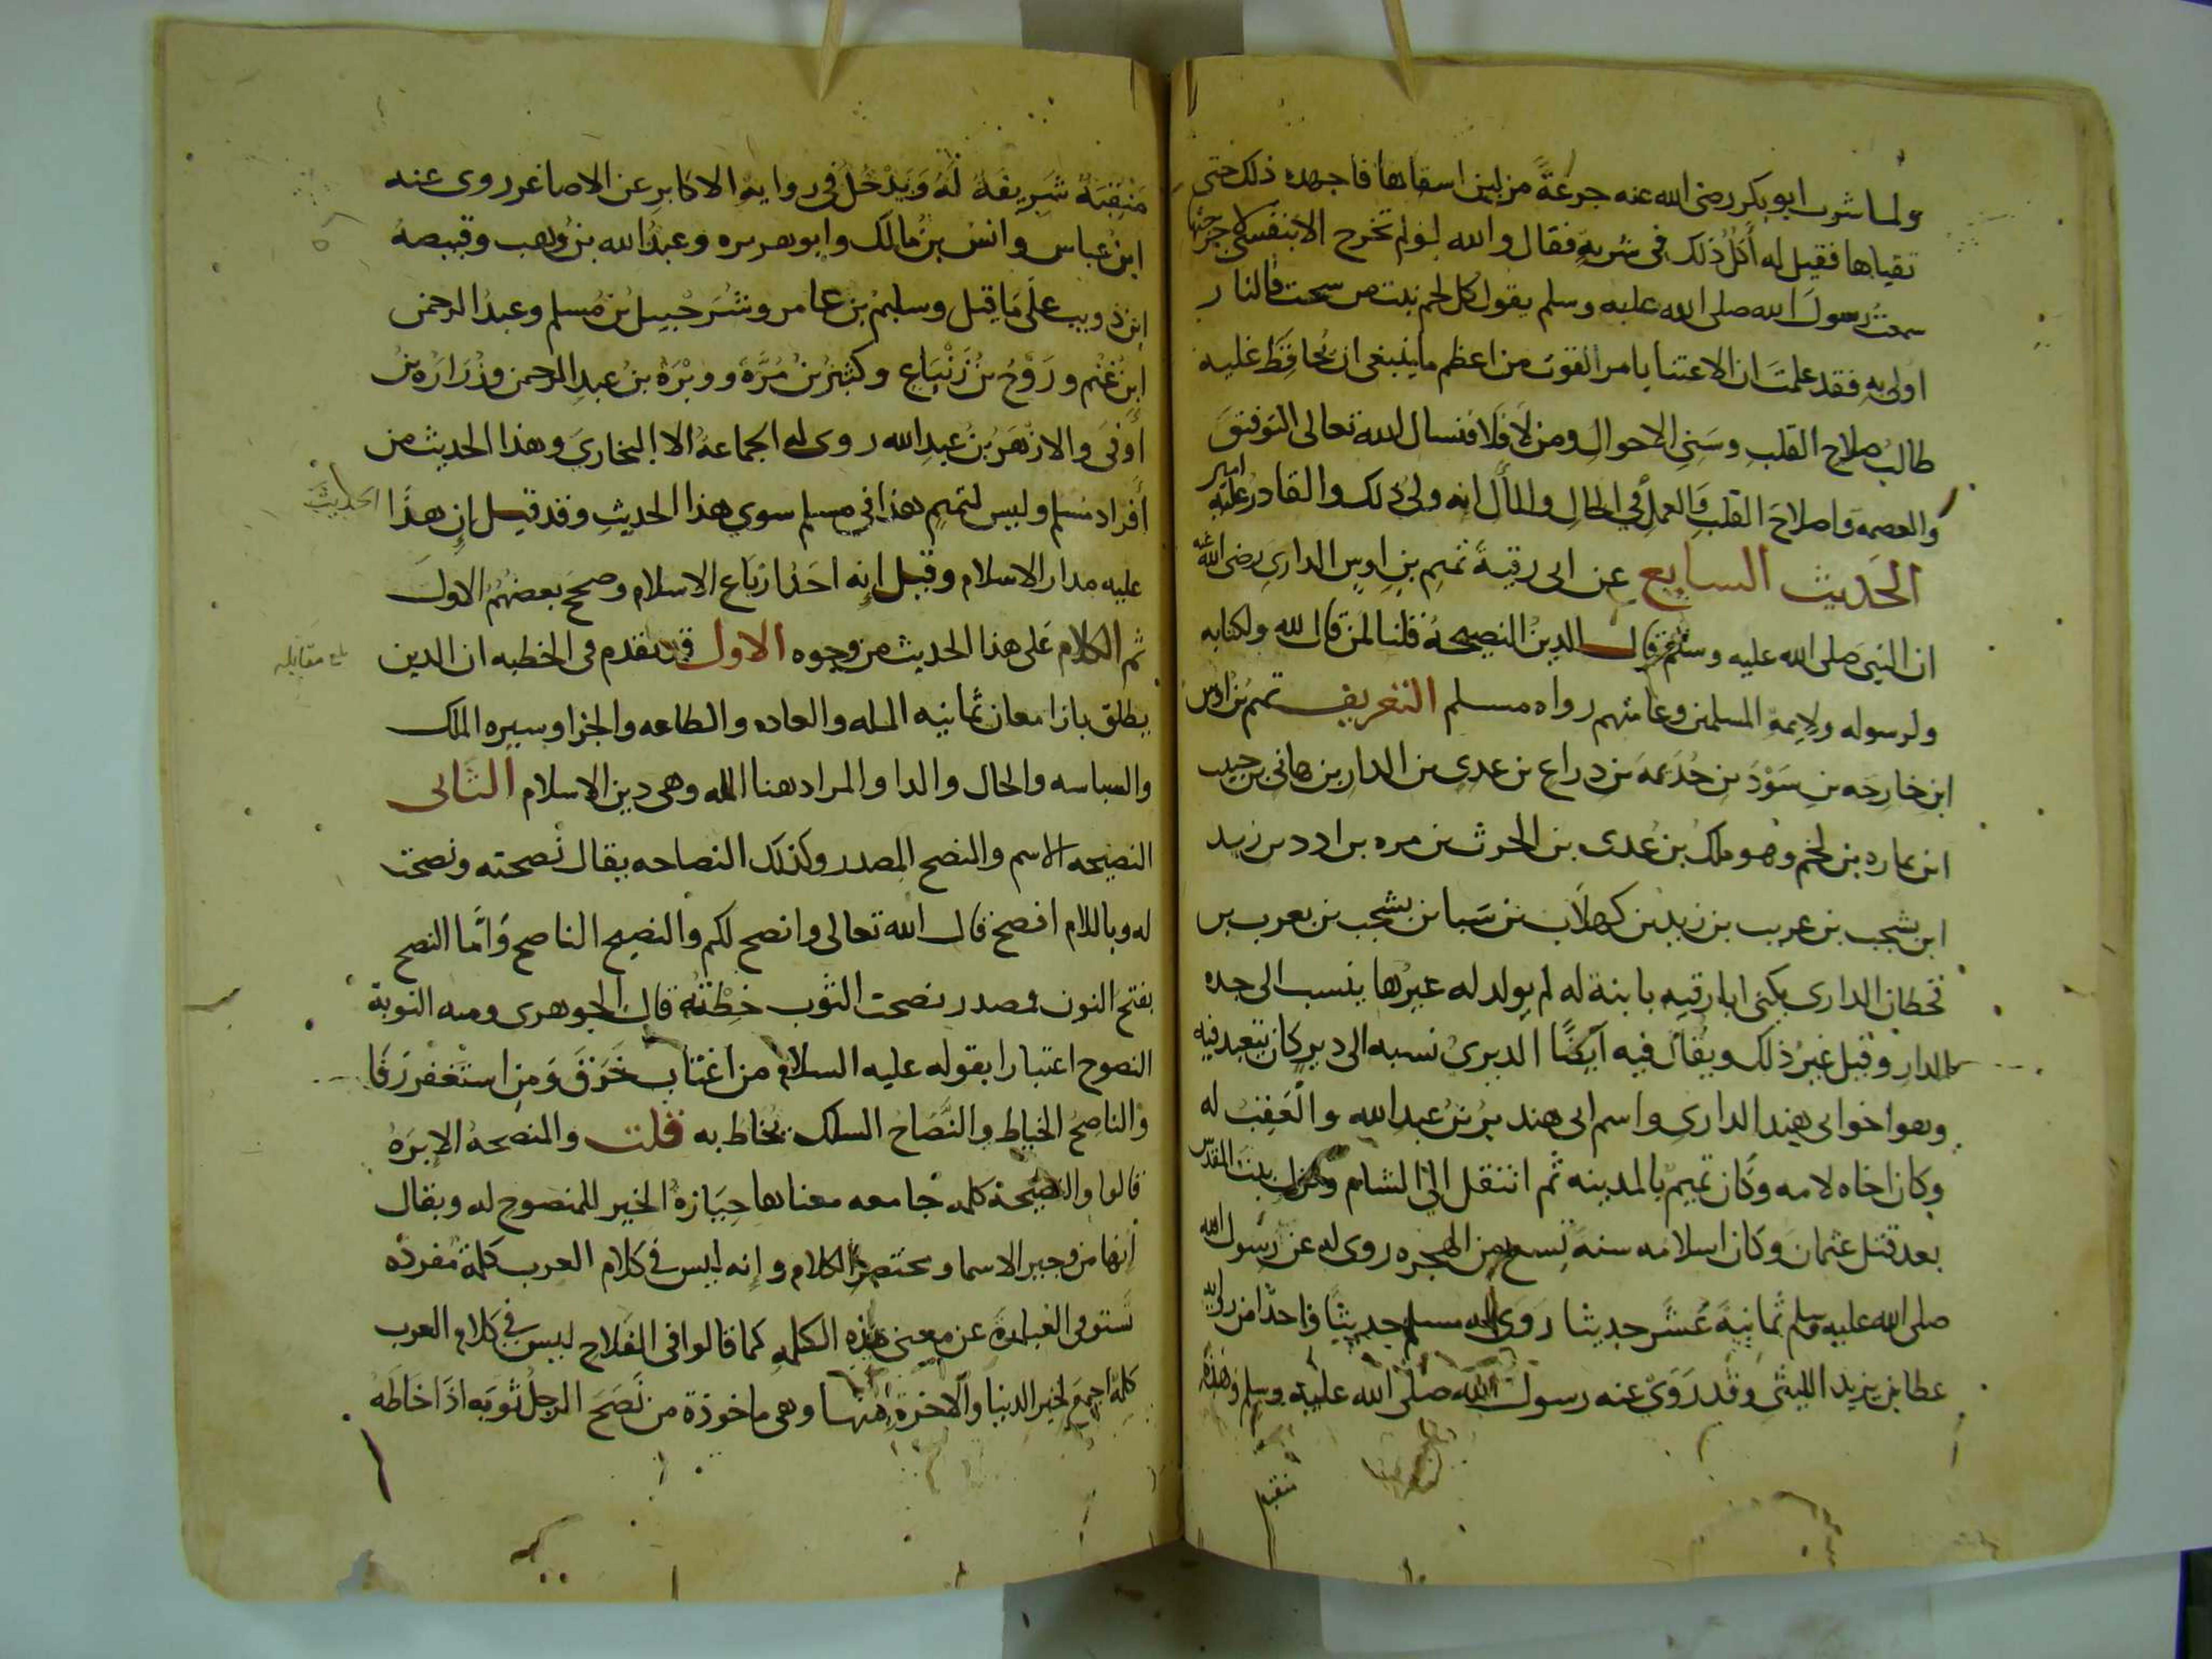 ولما شرب ابو بكر رضي الله عنه جرعة من لبن استقاها فاجهده ذلك حتى
تقياها فقيل له أكل ذلك في شربة فقال والله لو لم تخرج الا بنفسي لاخرجتها
سمعت رسول الله صلى الله عليه وسلم يقول كل لحم نبت من سحت فالنار
اولى به فقد علمت ان الاعتنا بامر القوت من اعظم ما ينبغي ان يحافظ عليه
طالب صلاح القلب وسني الاحوال ومن لا فلا فنسال الله تعالى التوفيق
والعصمه واصلاح القلب والعمل في الحال والمأل انه ولي ذلك والقادر عليه امين
الحديث السابع عن ابي رقية تميم بن اوس الداري رضي الله عنه
ان النبي صلى الله عليه وسلم قال الدين النصيحة قلنا لمن قال لله ولكتابه
ولرسوله ولايمة المسلمين وعامتهم رواه مسلم التعريف تميم بن اوس
ابن خارجه بن سود بن جذيمه بن دراع بن عدي بن الدار بن هاني بن حبيب
ابن نماره بن لخم وهو ملك بن عدي بن الحرث بن مره بن ادد بن زيد
ابن يشجب بن عريب بن زيد بن كهلان بن سبا بن يشجب بن يعرب بن
قحطان الداري يكنى ابا رقيه بابنة له لم يولد له غيرها ينسب الى جده
الدار وقيل غير ذلك ويقال فيه ايضا الديري نسبه الى دير كان يتعبد فيه
وهو اخو ابي هند الداري واسم ابي هند بر بن عبد الله والعقب له
وكان اخاه لامه وكان تميم بالمدينه ثم انتقل الى الشام ونزل بيت المقدس
بعد قتل عثمان وكان اسلامه سنة تسع من الهجره روي له عن رسول الله
صلى الله عليه وسلم ثمانية عشر حديثا روى له مسلم حديثا واحدا من رواية
عطا بن يزيد الليثي وقد روى عنه رسول الله صلى الله عليه وسلم وهذه
منقبة
منقبة شريفة له ويدخل في رواية الاكابر عن الاصاغر روى عنه
ابن عباس وانس بن مالك وابو هريره وعبد الله بن وهب وقبيصة
ابن ذويب على ما قيل وسليم بن عامر وشرحبيل بن مسلم وعبد الرحمن
ابن غنم وروح بن زنباع وكثير بن مرة ووبرة بن عبد الرحمن وزرارة بن
أوفى والازهر بن عبد الله روى له الجماعة الا البخاري وهذا الحديث من
أفراد مسلم وليس لتميم هذا في مسلم سوي هذا الحديث وقد قيل إن هذا الحديث
عليه مدار الاسلام وقيل إنه احد ارباع الاسلام وصحح بعضهم الاول
ثم الكلام على هذا الحديث من وجوه الاول قد تقدم في الخطبه ان الدين
بلغ مقابله
يطلق بازا معان ثمانيه المله والعاده والطاعه والجزا وسيره الملك
والسياسه والحال والدا والمراد هنا المله وهي دين الاسلام الثاني
النصيحه الاسم والنصح المصدر وكذلك النصاحه يقال نصحته ونصحت
له وباللام افصح قال الله تعالى وانصح لكم والنصيح الناصح وأما النصح
بفتح النون فمصدر نصحت الثوب خطته قال الجوهري ومنه التوبة
النصوح اعتبارا بقوله عليه السلام من اغتاب خرق ومن استغفر رفا
والناصح الخياط والنصاح السلك يخاط به قلت والنصحة الابرة
قالوا والنصيحة كلمه جامعه معناها حيازة الخير للمنصوح له ويقال
انها من وجيز الاسما ومختصر الكلام وإنه ليس في كلام العرب كلمة مفردة
تستوفى العبارة عن معنى هذه الكلمة كما قالوا في الفلاح ليس في كلام العرب
كلمة اجمع لخير الدنيا والآخرة منها وهي ماخوذة من نصح الرجل ثوبه اذا خاطه